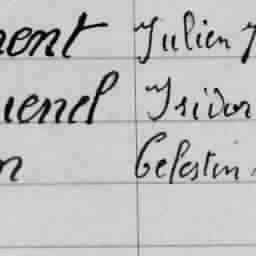 nent Julien J
uenel Isidor
n Celestin